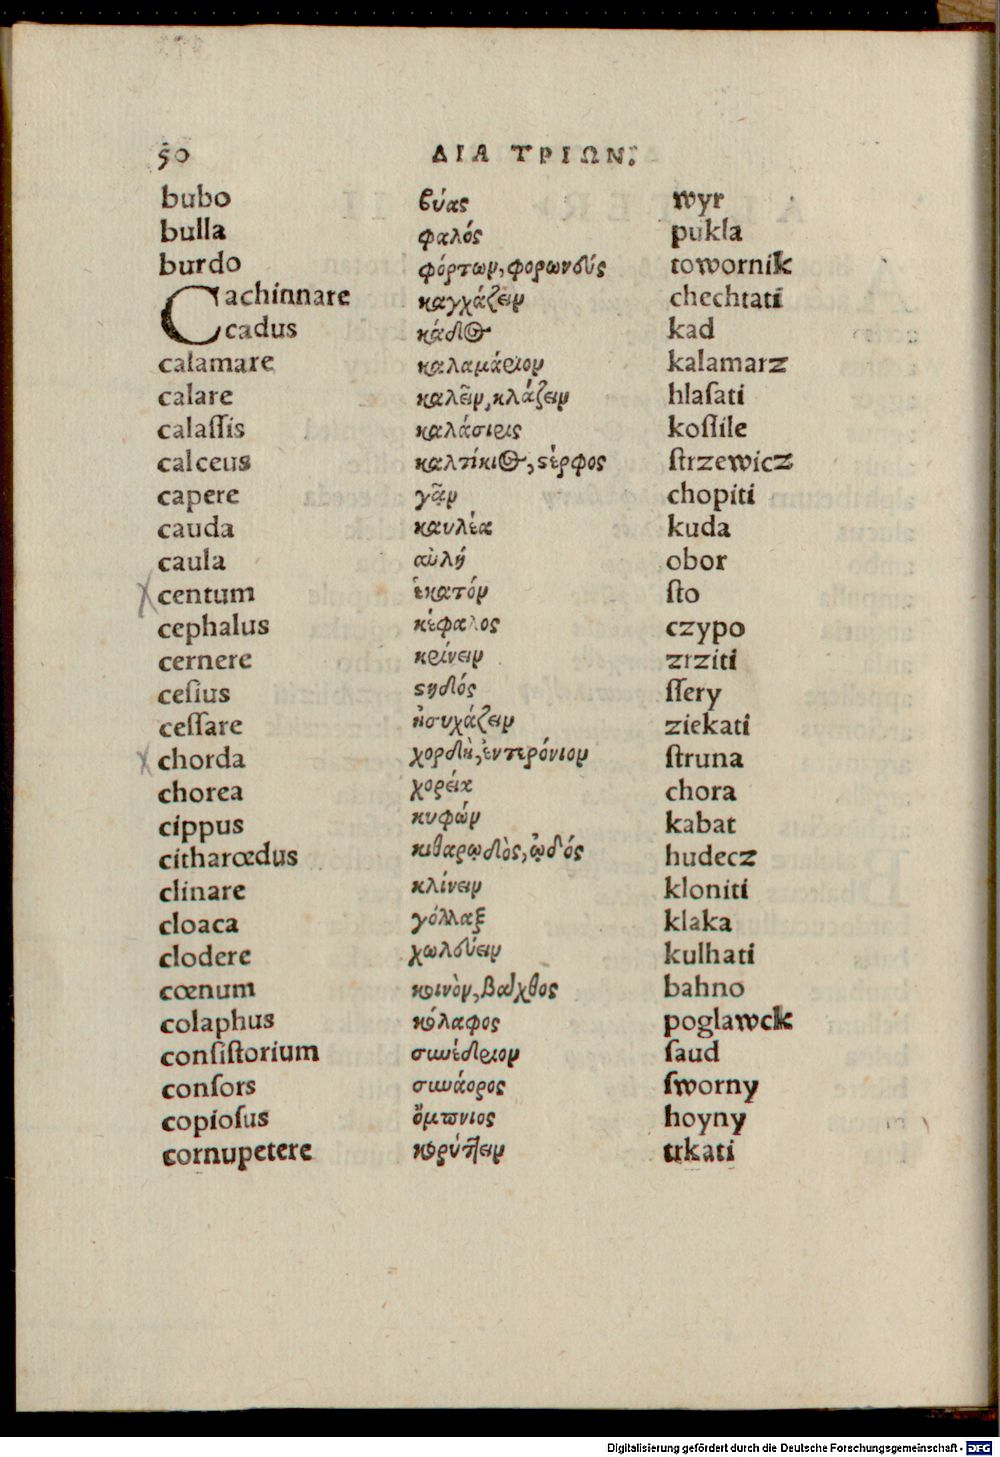 50 ΔΙΑ ΤΡΙΩΝ.
bubo βύας wyr
bulla φαλός pukla
burdo φόρτων, φορωνούς towornik
Cachinnare καγχάζειν chechtati
cadus κάδος kad
calamare καλαμάριον kalamarz
calare καλεῖν, κλάζειν hlaſati
calaſſis καλάσιρις koſſile
calceus καλτίκιος, στέρφος ſtrzewicz
capere γᾶν chopiti
cauda καυλέα kuda
caula αὐλή obor
centum ἑκατόν ſto
cephalus κέφαλος czypo
cernere κρίνειν zrziti
ceſius στηδός ſſery
ceſſare ἡσυχάζειν ziekati
chorda χορδὴ, ἐντερόνιον ſtruna
chorea χορεία chora
cippus κυφών kabat
citharœdus κιθαρῳδὸς, ᾠδός hudecz
clinare κλίνειν kloniti
cloaca γόλλαξ klaka
clodere χωλούειν kulhati
cœnum κοινὸν, bahno
colaphus κόλαφος poglawck
conſiſtorium συνέδριον ſaud
conſors συνάορος ſworny
copioſus ὄμπνιος hoyny
cornupetere κορύπτειν trkati
Digitalisierung gefördert durch die Deutsche Forschungsgemeinschaft - DFG